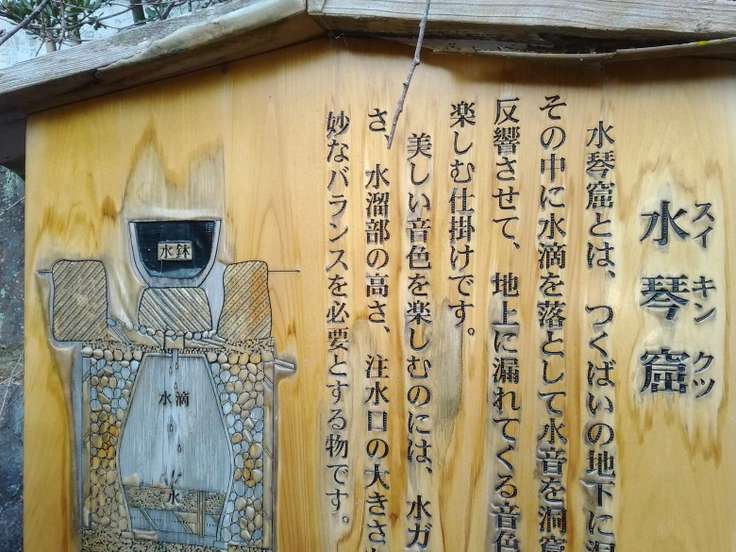 水琴窟
スイキンクツ
水琴窟とは、つくばいの地下に
その中に水滴を落として水音を洞窟
反響させて、地上に漏れてくる音色
楽しむ仕掛けです。
美しい音色を楽しむのには、水ガ
さ、水溜部の高さ、注水口の大きさ
妙なバランスを必要とする物です。
水鉢
水滴
水